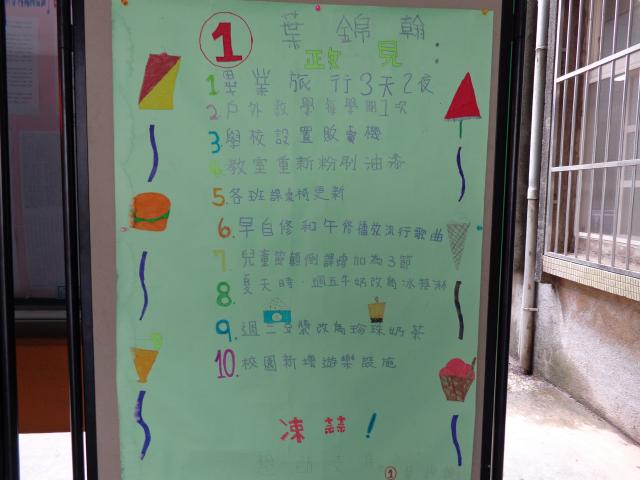 1 葉錦翰
政見:
1 畢業旅行3天2夜
2 戶外教學每學期1次
3 學校設置販賣機
4. 教室重新粉刷油漆
5. 各班課桌椅更新
6. 早自修和午修播放流行歌曲
7. 兒童節顛倒課增加為3節
8. 夏天時,週五午奶改為冰淇淋
9. 週三豆漿改為珍珠奶茶
10. 校園新增遊樂設施
凍蒜!
1